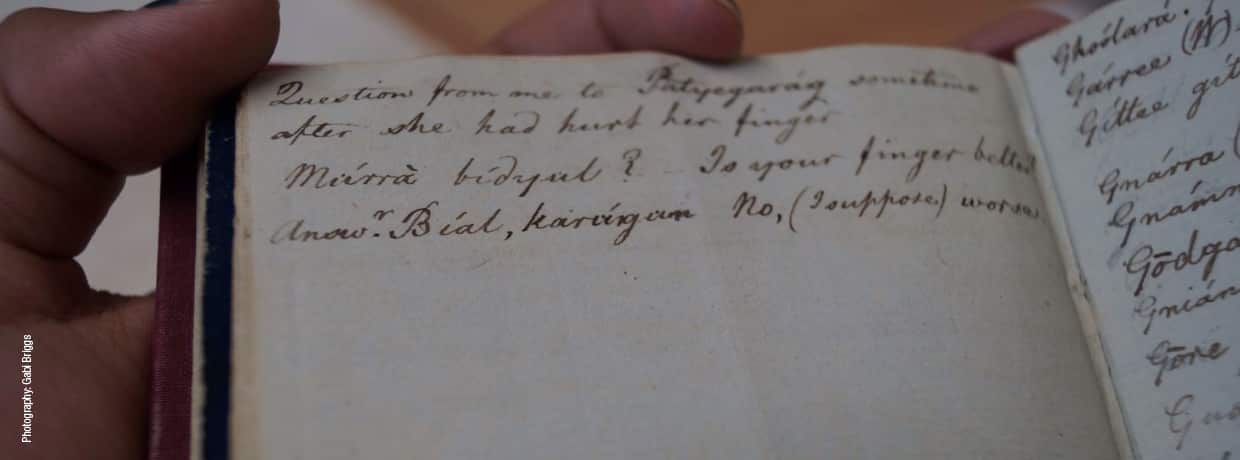 Question from me to Patyegarág sometime
after she had hurt her finger
Múrrà bídyul? – Is your finger better
Answ.r Bíal, karúngun No, (I suppose) worse
Ghoólara.
Gárree (W).
Gíttee
Gnárra
Gōre
Photography: Gabi Briggs